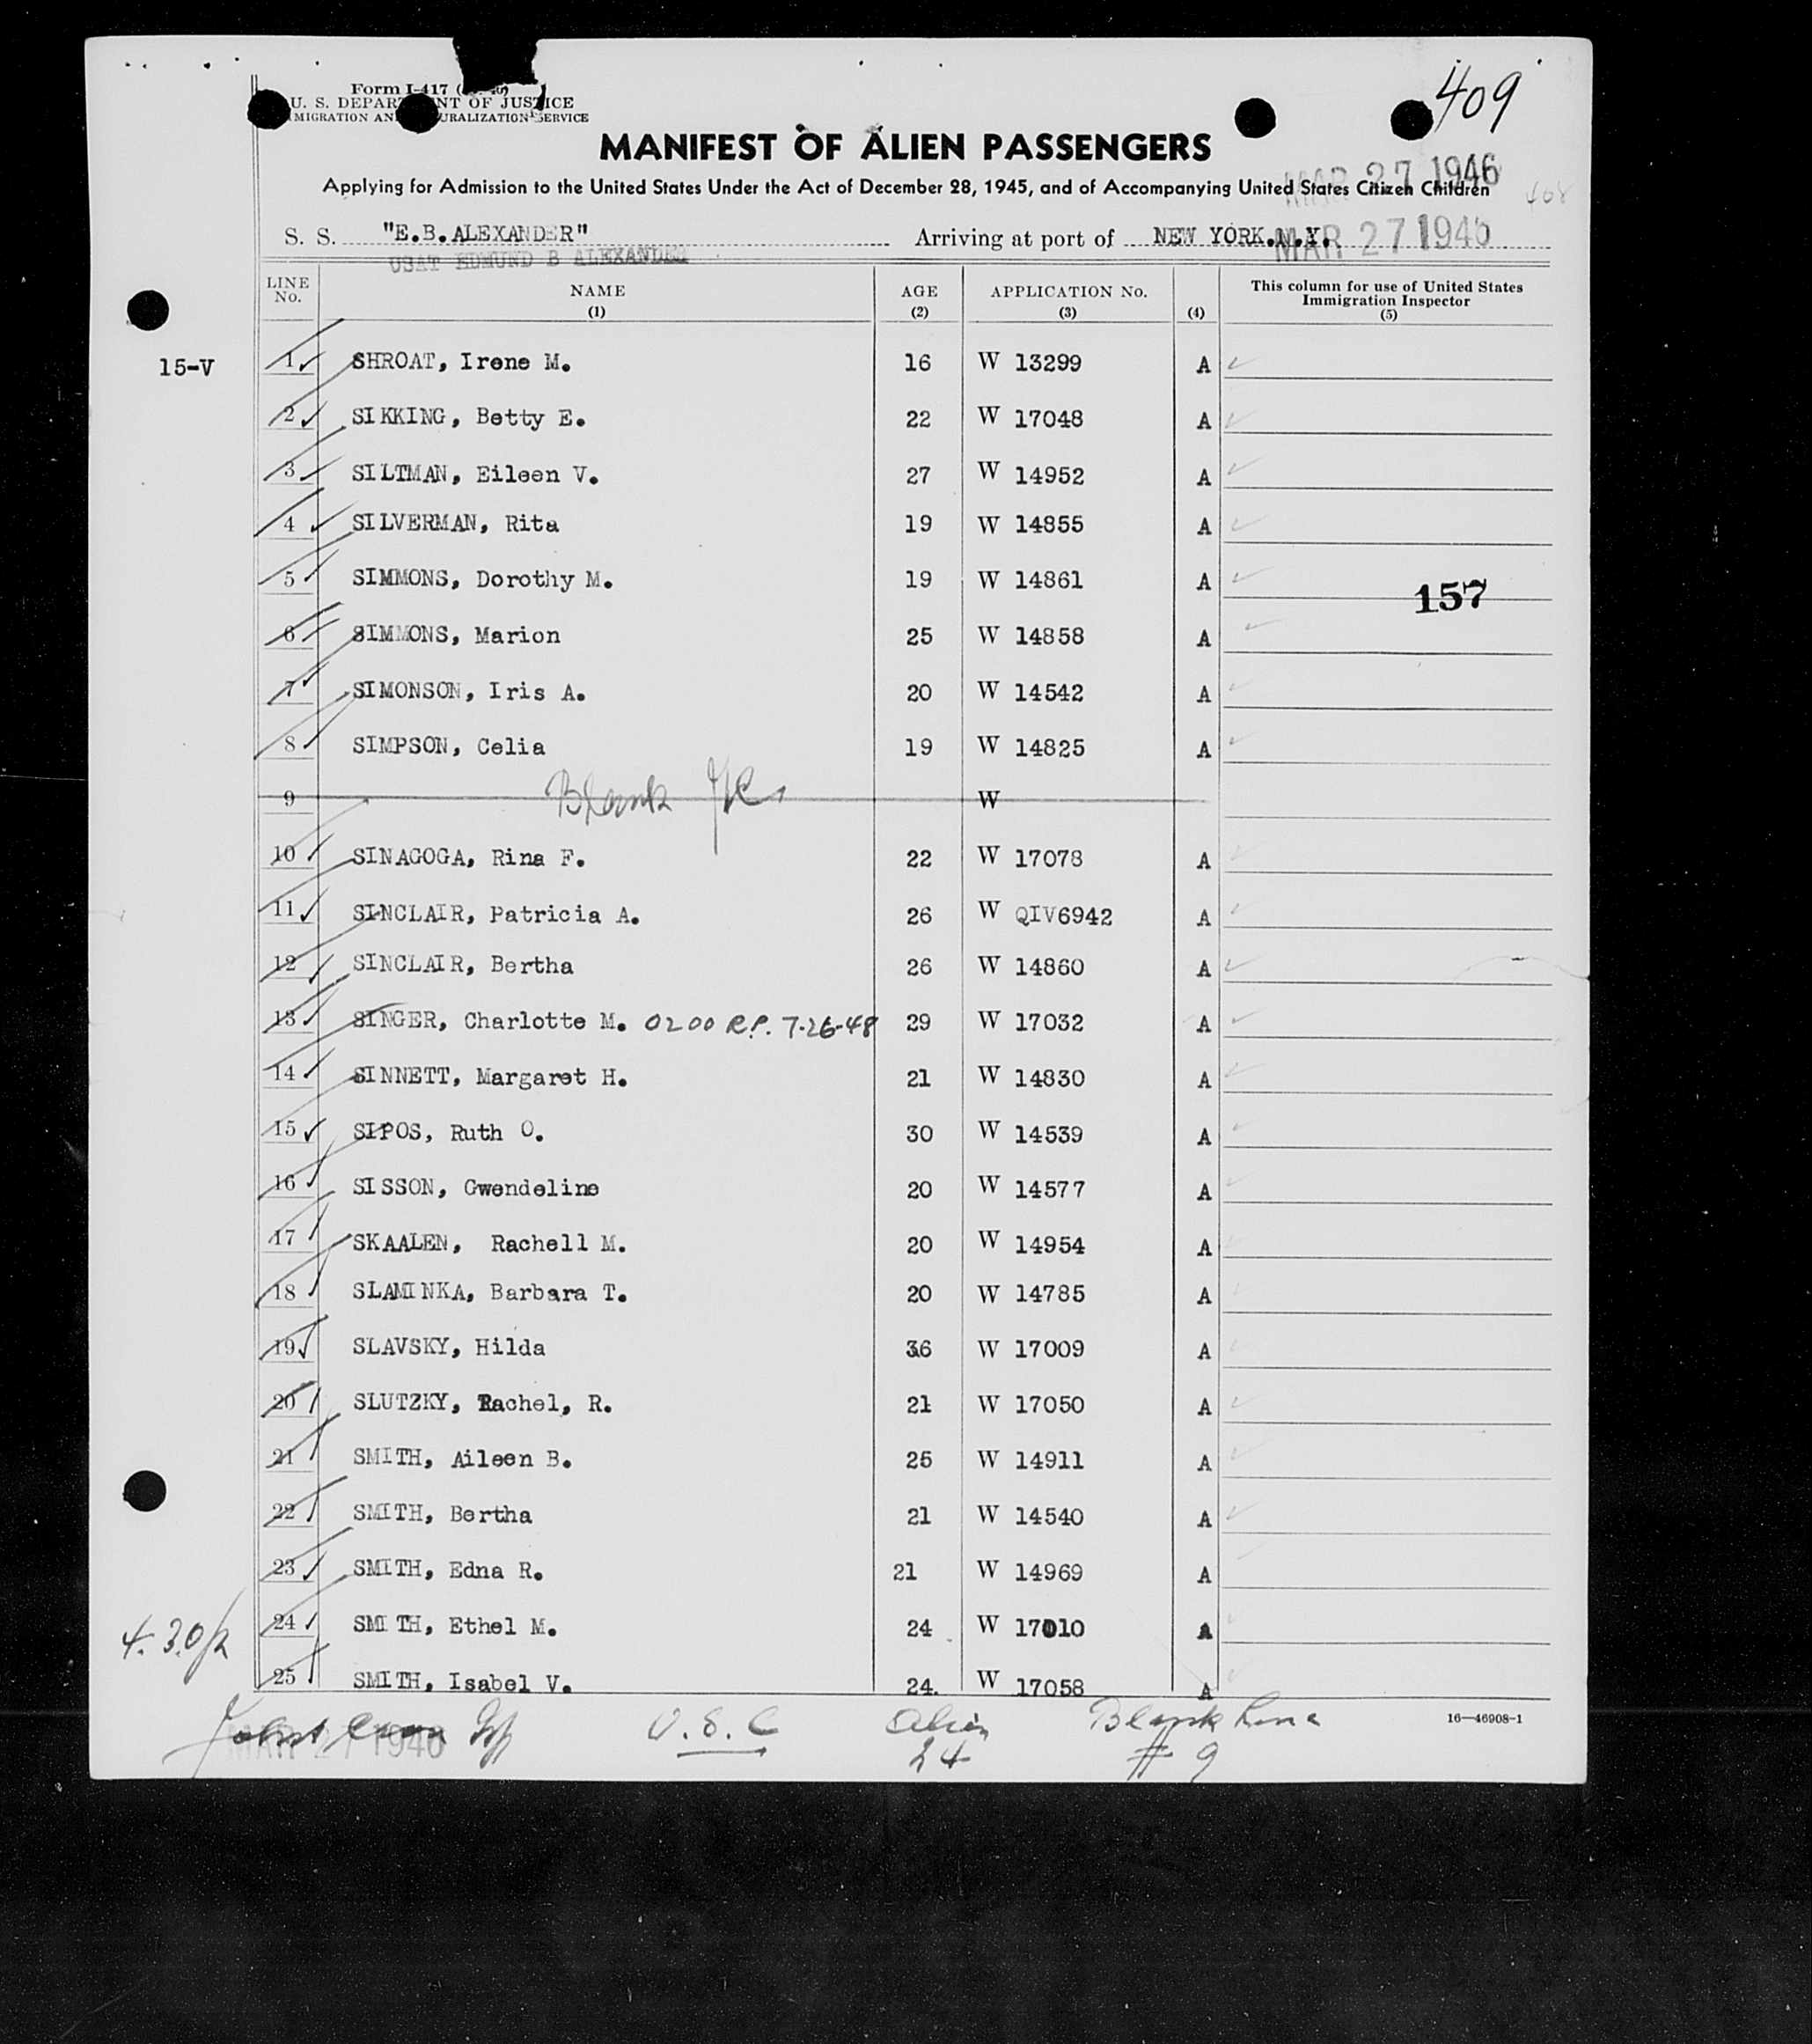 409
Form I-417
U. S. DEPARTMENT OF JUSTICE
IMMIGRATION AND NATURALIZATION SERVICE
MANIFEST OF ALIEN PASSENGERS
MAR 27 1946
Applying for Admission to the United States Under the Act of December 28, 1945, and of Accompanying United States Citizen Children
408
S. S. "E.B.ALEXANDER" Arriving at port of NEW YORK.N.Y.
MAR 27 1946
USAT EDMUND B ALEXANDER
LINE No. NAME (1) AGE (2) APPLICATION No. (3) (4) This column for use of United States Immigration Inspector (5)
15-V 1 SHROAT, Irene M. 16 W 13299 A
2 SIKKING, Betty E. 22 W 17048 A
3 SILTMAN, Eileen V. 27 W 14952 A
4 SILVERMAN, Rita 19 W 14855 A
5 SIMMONS, Dorothy M. 19 W 14861 A
157
6 SIMMONS, Marion 25 W 14858 A
7 SIMONSON, Iris A. 20 W 14542 A
8 SIMPSON, Celia 19 W 14825 A
9 Blank W
10 SINAGOGA, Rina F. 22 W 17078 A
11 SINCLAIR, Patricia A. 26 W QIV6942 A
12 SINCLAIR, Bertha 26 W 14860 A
13 SINGER, Charlotte M. 0200 R.P. 7-26-48 29 W 17032 A
14 SINNETT, Margaret H. 21 W 14830 A
15 SIPOS, Ruth O. 30 W 14539 A
16 SISSON, Gwendeline 20 W 14577 A
17 SKAALEN, Rachell M. 20 W 14954 A
18 SLAMINKA, Barbara T. 20 W 14785 A
19 SLAVSKY, Hilda 36 W 17009 A
20 SLUTZKY, Rachel, R. 21 W 17050 A
21 SMITH, Aileen B. 25 W 14911 A
22 SMITH, Bertha 21 W 14540 A
23 SMITH, Edna R. 21 W 14969 A
24 SMITH, Ethel M. 24 W 17010 A
25 SMITH, Isabel V. 24. W 17058 A
U.S.C Alien Blank Line 16—46908-1
MAR 27 1946 24 # 9